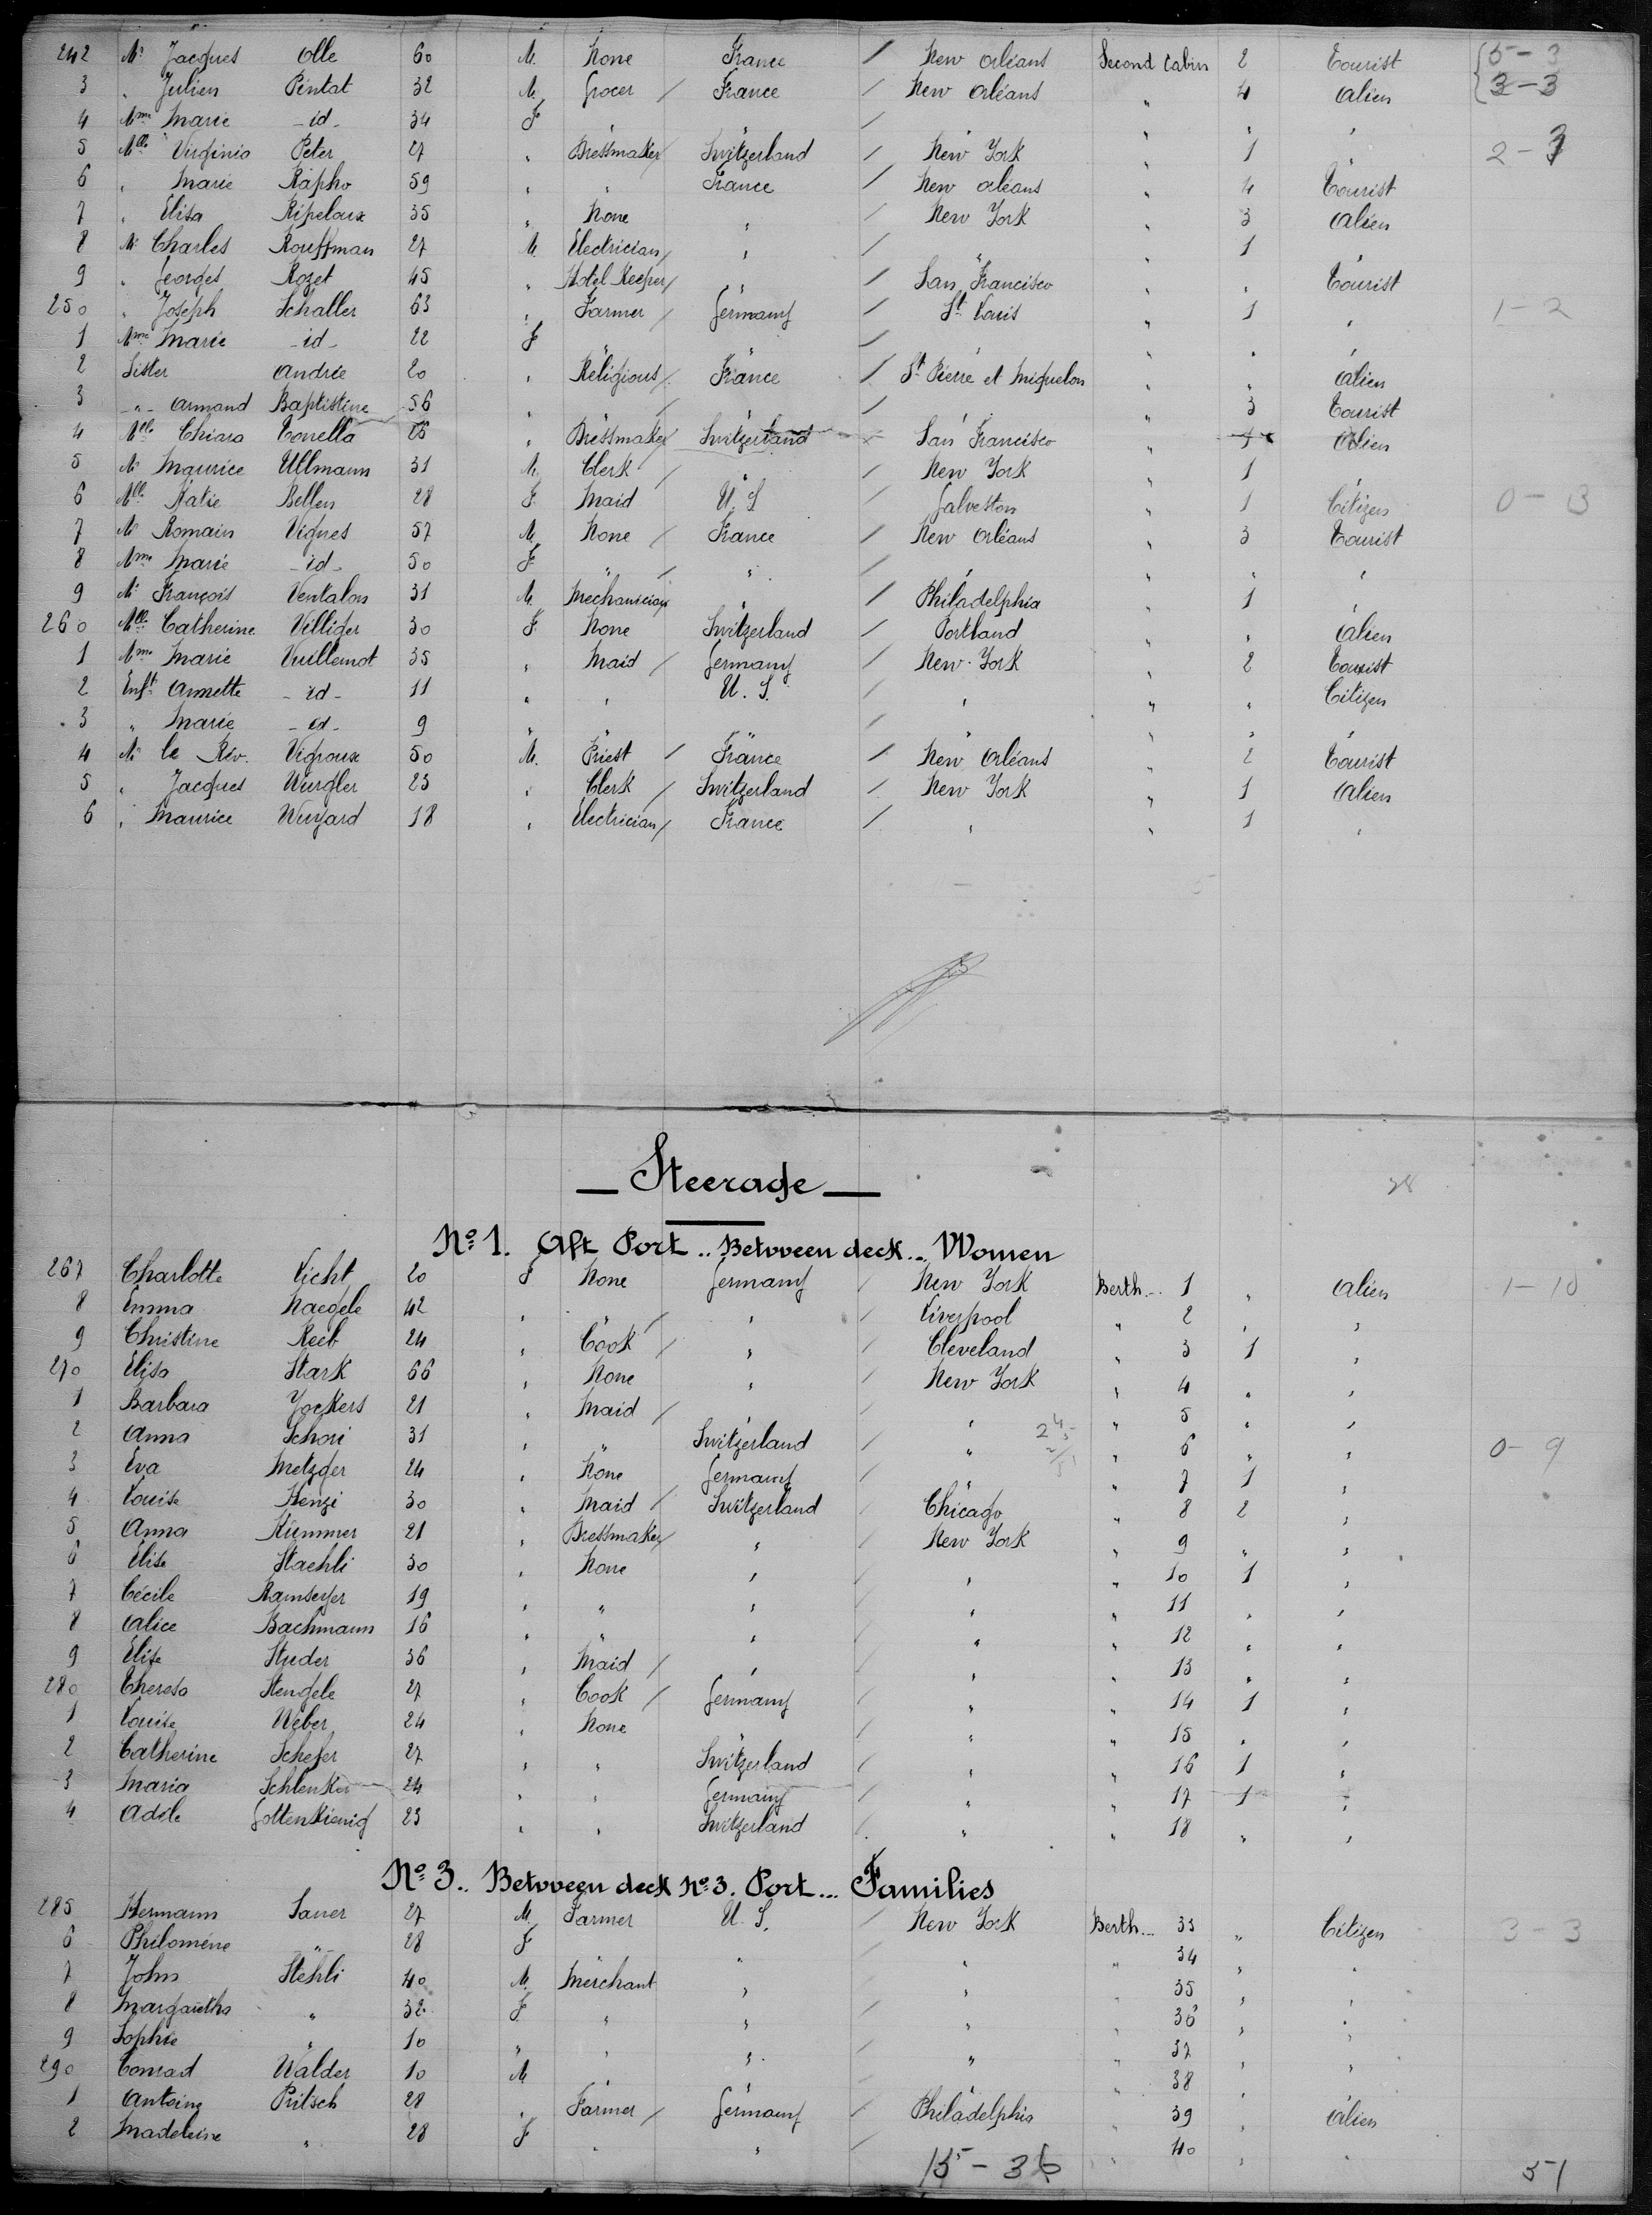 242 Mr Jacques Olle 60 M. None France / New Orléans Second Cabin 2 Tourist 5-3
3 " Julien Pintat 32 M. Grocer / France / New Orléans " 4 Alien 3-3
4 Mme Marie -id- 34 F " " / " " " "
5 Mlle Virginio Peter 27 " Dressmaker / Switzerland / New York " 1 " 2-3
6 " Marie Rapho 59 " " France / New Orléans " 4 Tourist
7 " Elisa Ripeloux 35 " None " / New York " 3 Alien
8 Mr Charles Rouffman 27 M. Electrician / " / " " 1 "
9 " Georges Rozet 45 " Hotel Keeper / " / San Francisco " " Tourist
250 " Joseph Schaller 63 " Farmer / Germany / St Louis " 1 " 1-2
1 Mme Marie -id- 22 F " " / " " " "
2 Sister Andrée 20 " Religious / France / St Pierre et Miquelon " " Alien
3 -"- Armand Baptistine 56 " " / " / " " 3 Tourist
4 Mlle Chiara Tonella " Dressmaker / Switzerland San Francisco " 1 Alien
5 Mr Maurice Ullmann 31 M. Clerk / " / New York " 1 "
6 Mlle Katie Bellen 28 F. Maid U. S / Galveston " 1 Citizen 0-3
7 Mr Romain Vignes 57 M. None / France / New Orléans " 3 Tourist
8 Mme Marie -id- 50 F " / " / " " " "
9 Mr François Ventalon 31 M. Mechanician " / Philadelphia " 1 "
260 Mlle Catherine Villiger 30 F. None Switzerland / Portland " " Alien
1 Mme Marie Vuillemot 35 " Maid / Germany / New-York " 2 Tourist
2 Enft Annette -id- 11 " " U. S. / " " " Citizen
3 " Marie -id- 9 " " " / " " " "
4 Mr le Rév. Vigroux 50 M. Priest / France / New Orléans " 2 Tourist
5 " Jacques Wurgler 23 " Clerk / Switzerland / New York " 1 Alien
6 " Maurice Wuyard 18 " Electrician / France / " " 1 "
— Steerage —
38
No 1. Aft Port .. Betvveen deck .. VVomen
267 Charlotte Licht 20 F None Germany / New York Berth... 1 " Alien 1-10
8 Emma Naegele 42 " " / " / Liverpool " 2 " "
9 Christine Reeb 24 " Cook / " / Cleveland " 3 1 "
270 Elisa Stark 66 " None " / New York " 4 " "
1 Barbara Jockers 21 " Maid / " / " " 5 " "
2 Anna Schori 31 " " Switzerland / " " 6 " " 0-9
3 Eva Metzger 24 " None Germany / " " 7 1 "
4 Louise Henzi 30 " Maid / Switzerland / Chicago " 8 2 "
5 Anna Kummer 21 " Dressmaker / " / New York " 9 " "
6 Elise Staehli 30 " None " / " " 10 1 "
7 Cécile Ramseyer 19 " " " / " " 11 " "
8 Alice Bachmann 16 " " " / " " 12 " "
9 Elise Studer 36 " Maid / " / " " 13 " "
280 Theresa Stengele 27 " Cook / Germany / " " 14 1 "
1 Louise Weber 24 " None " / " " 15 " "
2 Catherine Schefer 27 " " Switzerland / " " 16 1 "
3 Maria Schlenker 24 " " Germany " " 17 1 "
4 Adèle Gottenkienig 23 " " Switzerland / " " 18 " "
No 3.. Betvveen deck No 3. Port... Families
285 Hermann Saner 27 M. Farmer U. S. / New York Berth... 33 " Citizen 3-3
6 Philomène -"- 28 F " / " " 34 " "
7 John Stehli 40 M. Merchant " / " " 35 " "
8 Margaretha " 32 F. " " / " " 36 " "
9 Sophie " 10 " " " / " " 37 " "
290 Conrad Walder 10 M. " " / " " 38 " "
1 Antoine Pritsch 28 " Farmer / Germany / Philadelphia " 39 " Alien
2 Madeleine " 28 F " " / " " 40 " "
15-36
51